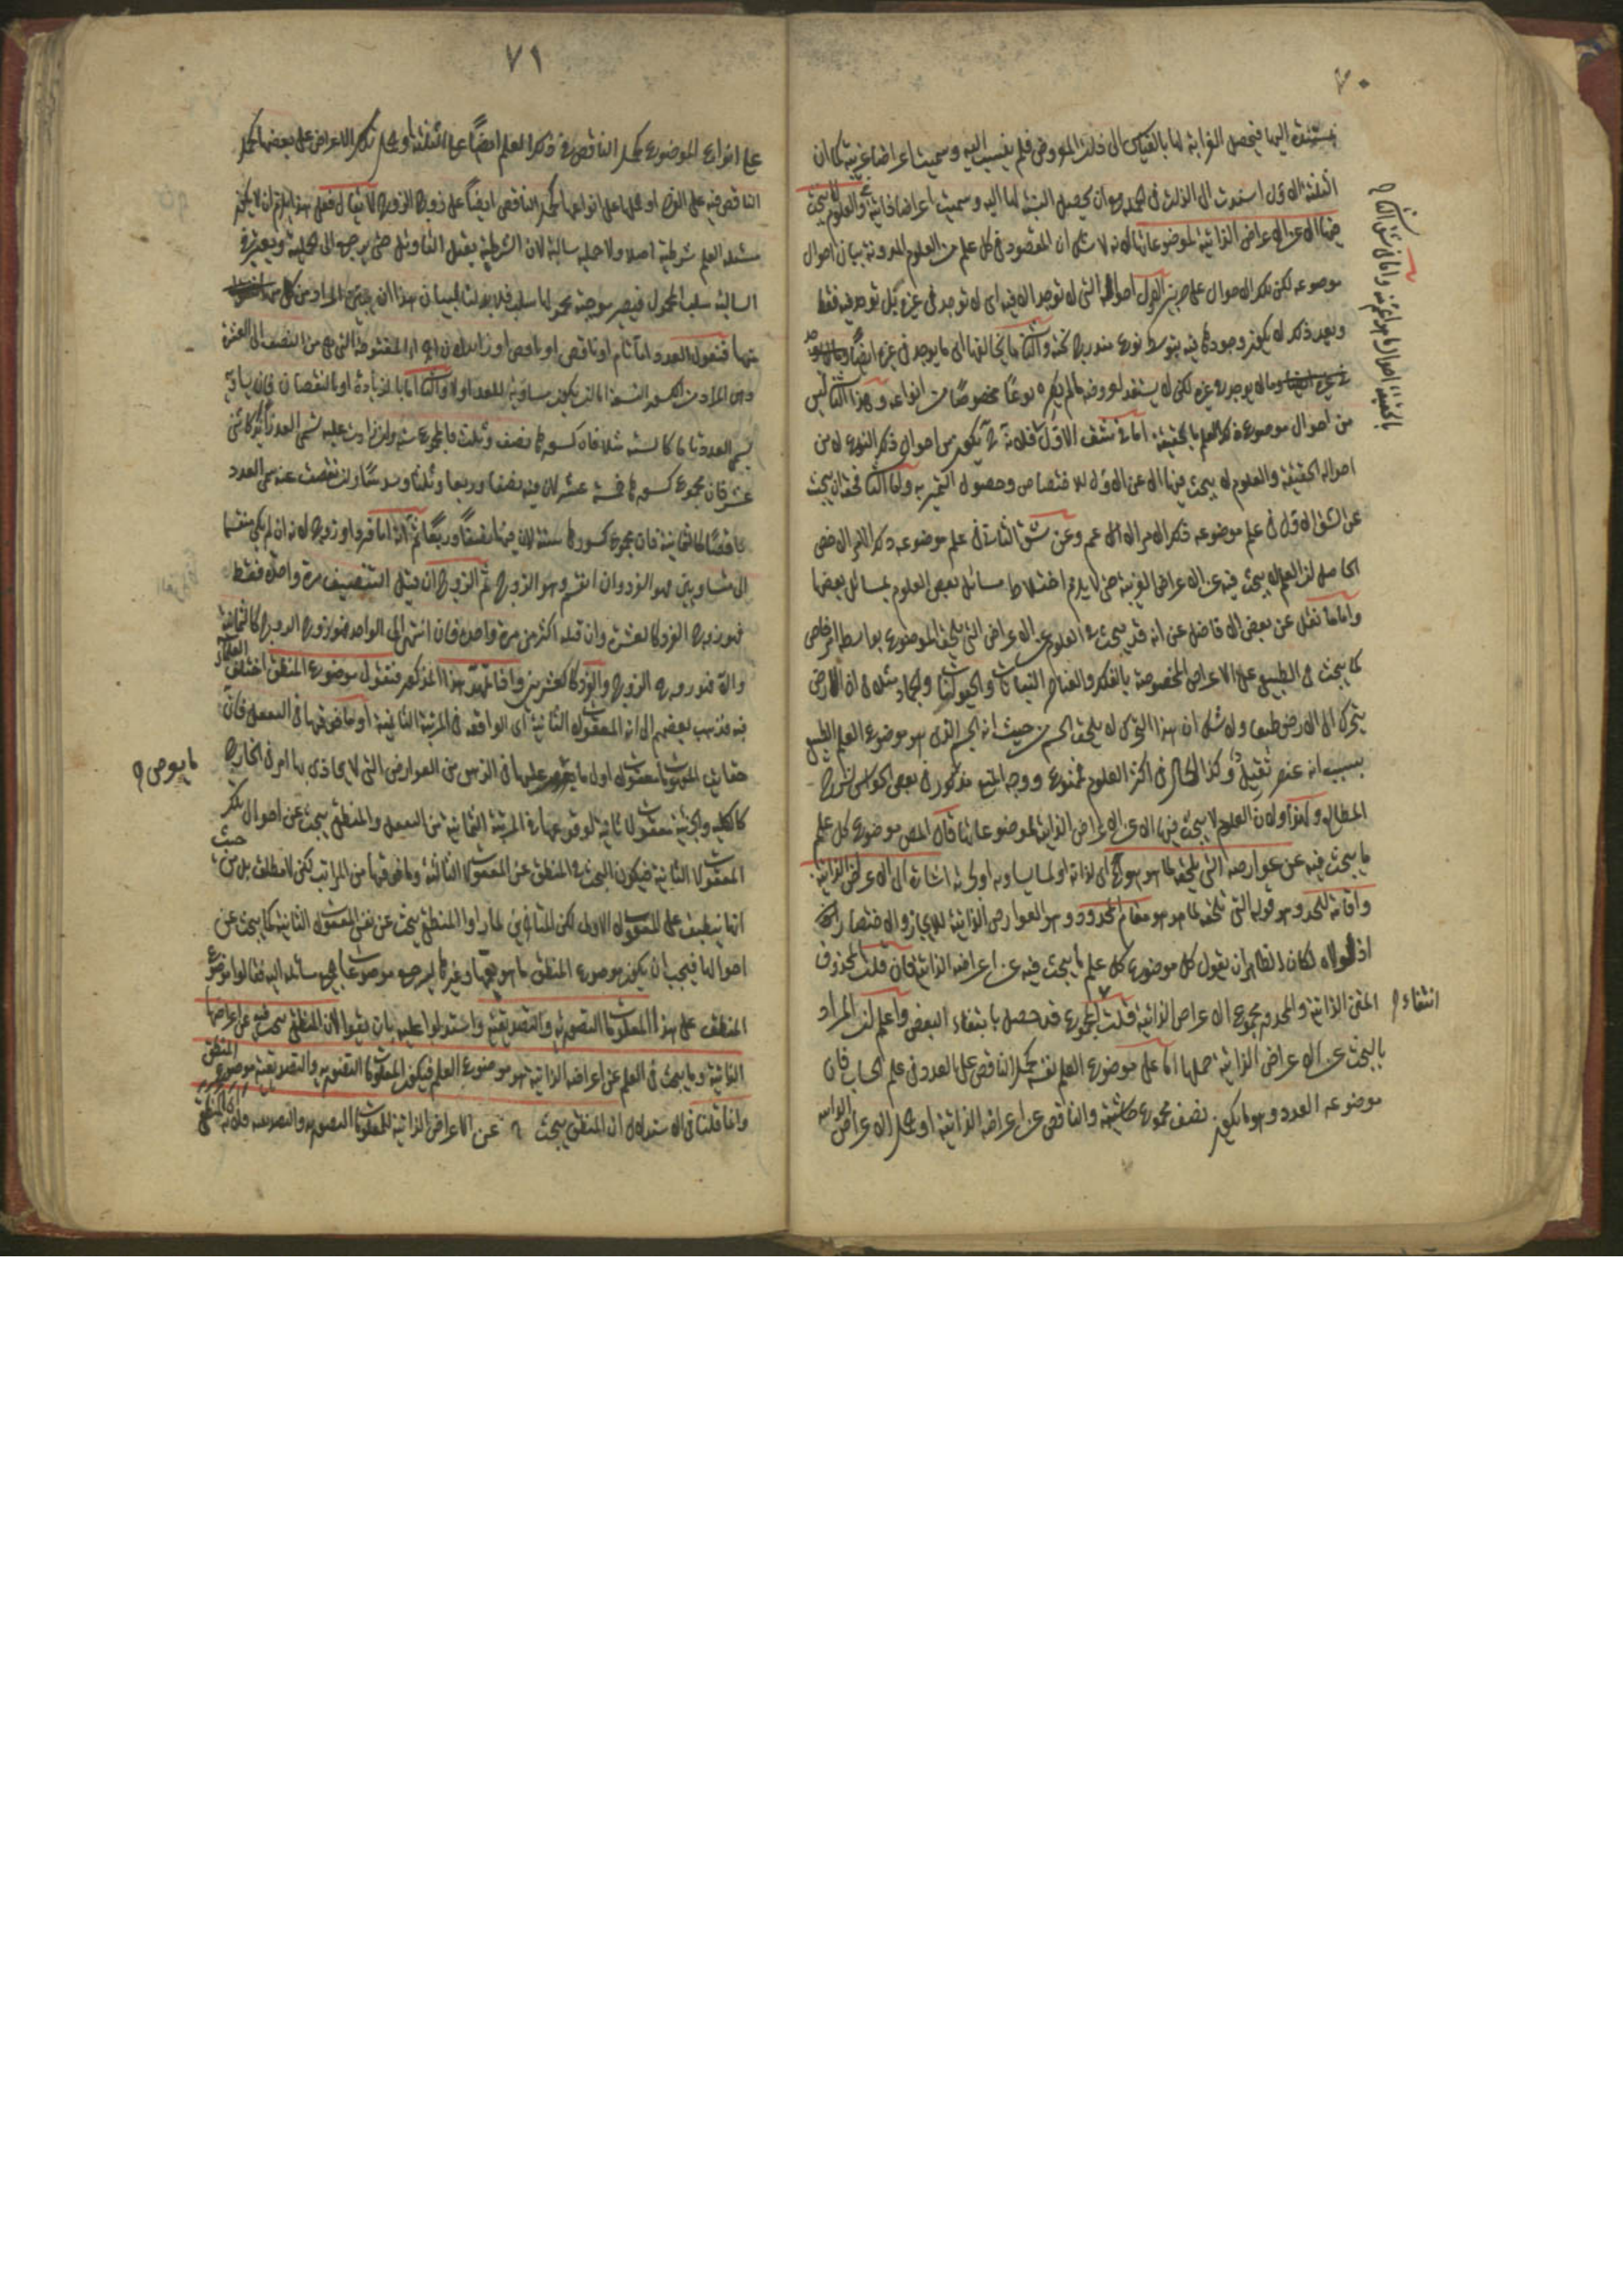 ٧٠
مستندة اليها فيحصل الغرابة لها بالقياس الى ذلك المعروض فلم ينسب اليه وسميت اعراضا غريبة كما ان
الثلثة الاول استندت الى الذات في الجملة مع ان يحصل النسبة لها اليه وسميت اعراضا ذاتية والعلوم لا يبحث
فيها الا عن الاعراض الذاتية لموضوعاتها لانه لا شك ان المقصود في كل علم من العلوم المدونة بيان احوال
موضوعه لكن تلك الاحوال على ضربين الاول احواله التي لا توجد الا فيه اى لا توجد في غيره بل توجد فيه فقط
وبعد ذلك لا يكون وجودها فيه بتوسط نوع مندرج تحته والثاني ما يخالفها اى ما يوجد في غيره ايضا
وما لا يوجد في غيره لكن لا يستعد لعروضه ما لم يكن نوعا مخصوصا من انواعه وهذا الثاني ليس
من احوال موضوع ذلك العلم بالحقيقة اما في شقه الاول فلانه يكون من احوال ذلك النوع لا من
احواله الحقيقية والعلوم لا يبحث فيها الا عن الاول للاختصاص وحصول التميز به واما الثاني فحقه ان يبحث
عن الشق الاول في علم موضوعه ذلك الامر الاعم وعن شق الثاني في علم موضوعه ذلك الامر الاخص
الحاصل ان العلم لا يبحث فيه عن الاعراض الغريبة حتى لا يلزم اختلاط مسائل بعض العلوم بمسائل بعضها
واما ما نقل عن بعض الافاضل عن انه قد يبحث في العلوم عن الاعراض التي يلحق الموضوع بواسطة امر خاص
كما يبحث في الطبيعي عن الاعراض المخصوصة بالفلك والعناصر والنباتات والحيوانات والجماد مثلا في ان الارض
يتحرك الى الارض طبعا ولا شك ان هذا التحرك لا يلحق الجسم من حيث انه الجسم الذي هو موضوع العلم الطبيعي
بسبب انه عنصر ثقيل وكذا الحال في اكثر العلوم فممنوع ووجه المنع مذكور في بعض الحواشي شرح
المطالع ولهذا ولان العلوم لا يبحث فيها الا عن الاعراض الذاتية لموضوعاتها قال المص موضوع كل علم
ما يبحث فيه عن عوارضه التي تلحقه لما هو هو اى لذاته او لما يساويه او لجزئه اشارة الى الاعراض الذاتية
واقامة للحد وهو قوله التي تلحقه لما هو هو مقام المحدود وهو العوارض الذاتية للايجاز والاختصار
اذ لولاه لكان الظاهر ان يقول كل موضوع كل علم ما يبحث فيه عن اعراضه الذاتية فان قلت المحذوف
المعنى الذاتية والمحدود مجموع الاعراض الذاتية قلت المجموع قد حصل بانتفاء البعض واعلم ان المراد
انتفاء
بالبحث عن الاعراض الذاتية حملها اما على موضوع العلم نفسه كحمل الناقص على العدد في علم الحساب فان
موضوعه العدد وهو ما يكون نصف مجموع حاشيتيه والناقص عن اعراضه الذاتية او على الاعراض الذاتية
٧١
على انواع الموضوع كحمل الناقص في ذلك العلم ايضا على الثلثة او على تلك الاعراض على بعضها كحمل
الناقص فيه على الفرد او على انواعها كحمل الناقص ايضا على زوج الزوج لا يقال فعلى هذا يلزم ان لا يكون
مسئلة العلم شرطية اصلا ولا حملية سالبة لان الشرطية يقبل التأويل حتى يرجع الى الحملية ويعتبر في
السالبة سلب المحمول فيصير موجبة محمولها سلب فلا بد لنا لبيان هذا ان يبين المراد من كل
منها فنقول العدد اما تام او ناقص او زائد لان اجزاءه المفروضة التي هي من النصف الى العشرة
وهي المراد من الكسور التسعة اما ان يكون مساوية للعدد او لا والثاني اما بالزيادة او بالنقصان فان يساويه
يسمى العدد تاما كالستة مثلا فان كسورها نصف وثلث فالمجموع ستة وان زادت عليه يسمى العدد زائدا كاثنى
عشر فان مجموع كسورها خمسة عشر لان فيه نصفا وربعا وثلثا وسدسا وان نقصت عنه سمى العدد
ناقصا كالثمانية فان مجموع كسورها ستة لان فيها نصفا وربعا ثم انه اما فرد او زوج لانه ان لم يكن منقسما
الى متساويين فهو الفرد وان انقسم وهو الزوج ثم الزوج ان قبل التنصيف مرة واحدة فقط
فهو زوج الفرد كالعشرة وان قبله اكثر من مرة واحدة فان انتهى الى الواحد فهو زوج الزوج كالثمانية
والا فهو زوج الزوج والفرد كالعشرين واذا تمهد هذا المذكور فنقول موضوع المنطق اختلف العلماء
فيه فذهب بعضهم الى انه المعقولات الثانية اى الواقعة في المرتبة الثانية او ما فوقها في التعقل فان
حقايق المفهومات معقولات اولى وما يعرض عليها في الذهن من العوارض التي لا يحاذى بها امر في الخارج
ما يعرض
كالكلية والجزئية معقولات ثانية لوقوعها في المرتبة الثانية من التعقل والمنطقى يبحث عن احوال تلك
المعقولات الثانية فيكون البحث في المنطق عن المعقولات الثالثة وما فوقها من المراتب لكن لا مطلقا بل من حيث
انها ينطبق على المعقولات الاولى لكن المتأخرين لما رأوا المنطقى يبحث عن نفس المعقولات الثانية كما يبحث عن
احوالها فيجب ان يكون موضوع المنطق ما هو يعمها وغيرها ليرجع موضوعات جميع مسائله اليه فقالوا موضوع
المنطق على هذا المعلومات التصورية والتصديقية واستدلوا عليه بان يقولوا لان المنطقى يبحث فيه عن اعراضها
الذاتية وما يبحث في العلم عن اعراضه الذاتية فهو موضوع العلم فيكون المعلومات التصورية والتصديقية موضوع المنطق
وانما قلنا في الاستدلال ان المنطقى يبحث عن الاعراض الذاتية للمعلومات التصورية والتصديقية